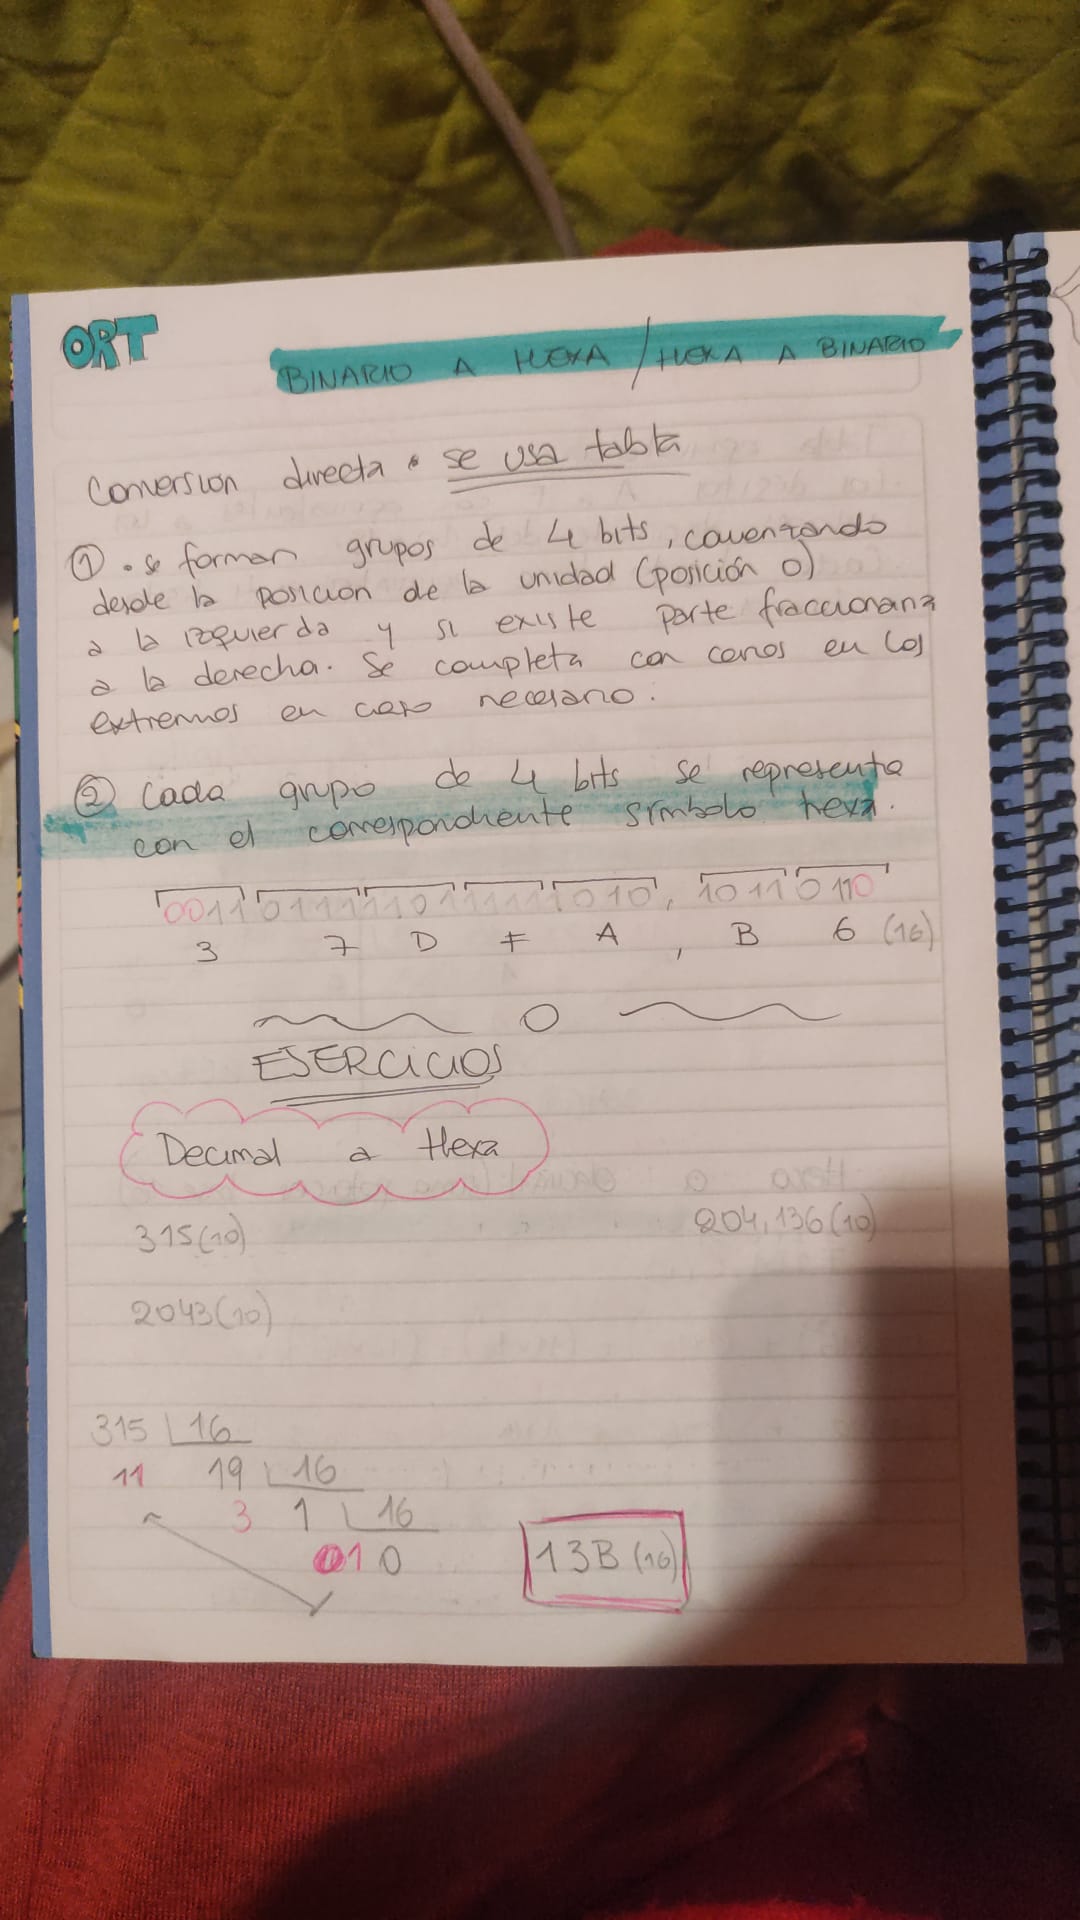 ORT
BINARIO A HEXA / HEXA A BINARIO
Conversion directa • se usa tabla
① • se forman grupos de 4 bits, comenzando
desde la posicion de la unidad (posición 0)
a la izquierda y si existe parte fraccionaria
a la derecha. Se completa con ceros en los
extremos en caso necesario.
② Cada grupo de 4 bits se representa
con el correspondiente símbolo hexa.
0011 0111 1101 1111 1010, 1011 0110
3 7 D F A , B 6 (16)
EJERCICIOS
Decimal a Hexa
315(10) 204,136(10)
2043(10)
315 16
11 19 16
3 1 16
01 0
13B (16)